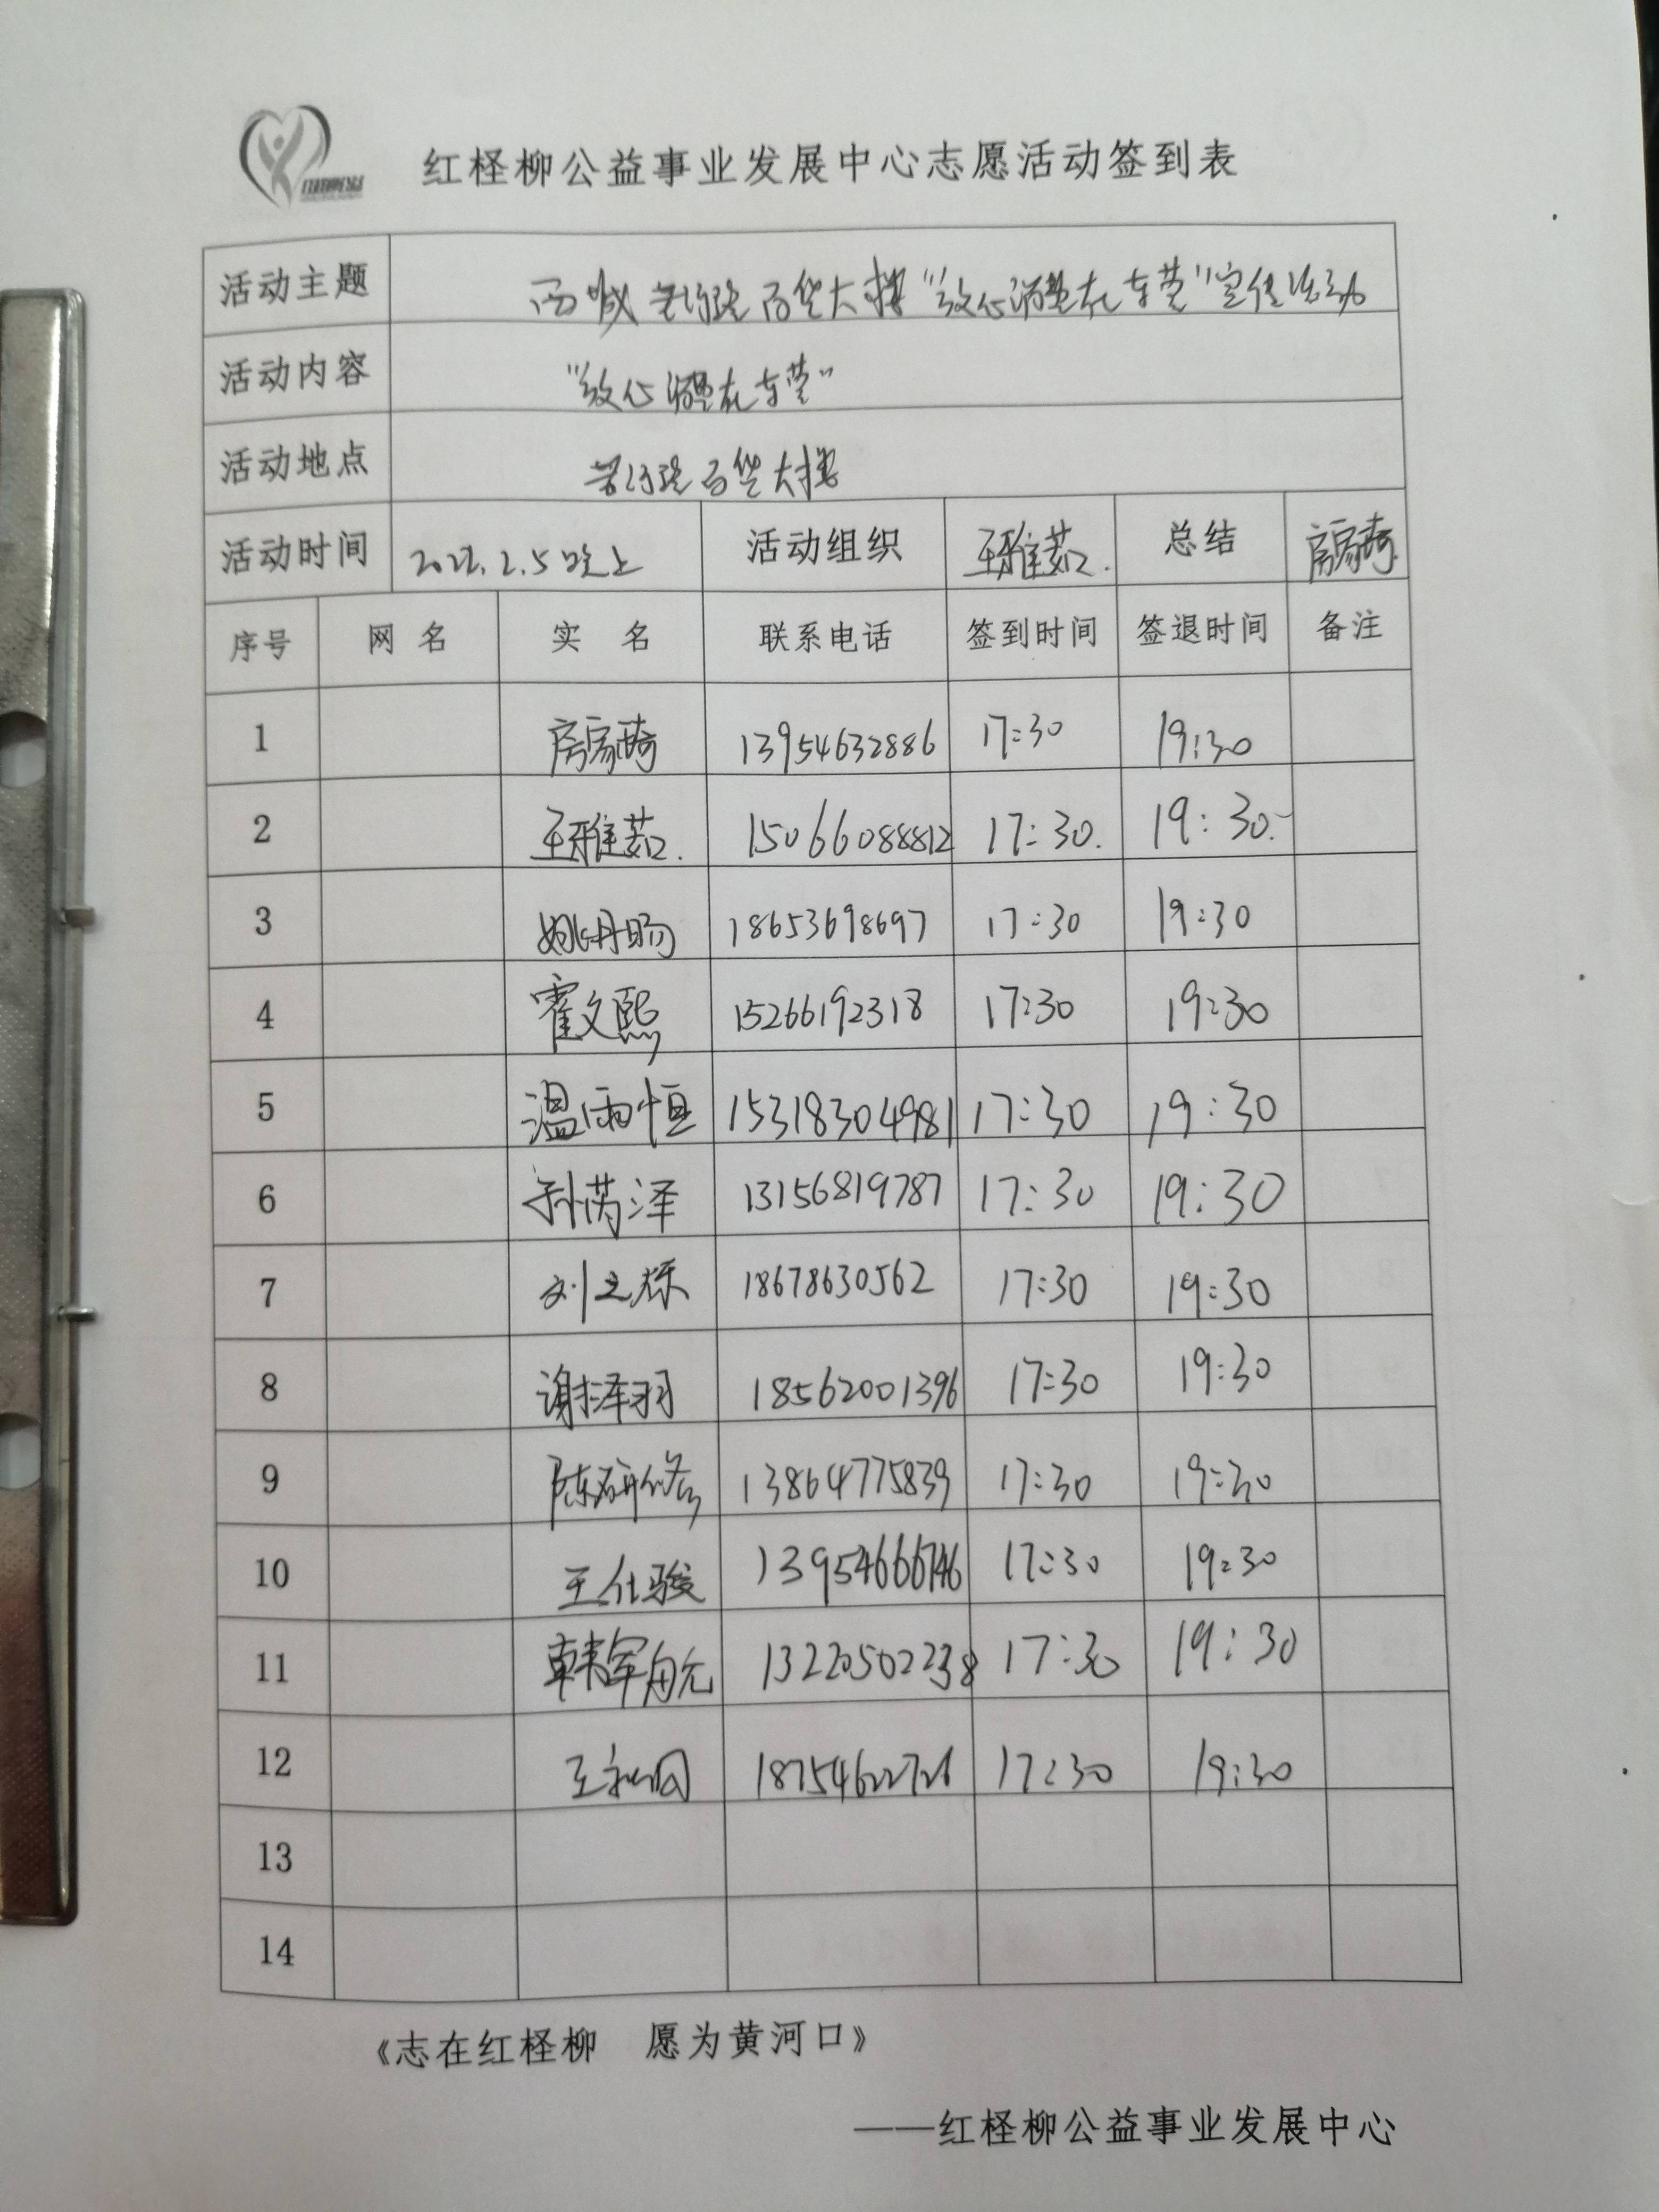 红柽柳公益事业发展中心志愿活动签到表
活动主题 西城 百货大楼“放心消费在东营”宣传活动
活动内容 “放心消费在东营”
活动地点 百货大楼
活动时间 2022.2.5晚上 活动组织 王雅茹. 总结 房家琦
序号 网 名 实 名 联系电话 签到时间 签退时间 备注
1 房家琦 13954632886 17:30 19:30
2 王雅茹. 15066088812 17:30. 19:30.
3 姚丹旸 18653698697 17:30 19:30
4 霍文熙 15266192318 17:30 19:30
5 温雨恒 15318304981 17:30 19:30
6 孙芮泽 13156819787 17:30 19:30
7 刘之栎 18678630562 17:30 19:30
8 谢泽羽 18562001396 17:30 19:30
9 陈研修 13864775839 17:30 19:30
10 王仕骏 13954666746 17:30 19:30
11 韩军舟元 13220502238 17:30 19:30
12 王 18754622726 17:30 19:30
13
14
《志在红柽柳 愿为黄河口》
——红柽柳公益事业发展中心